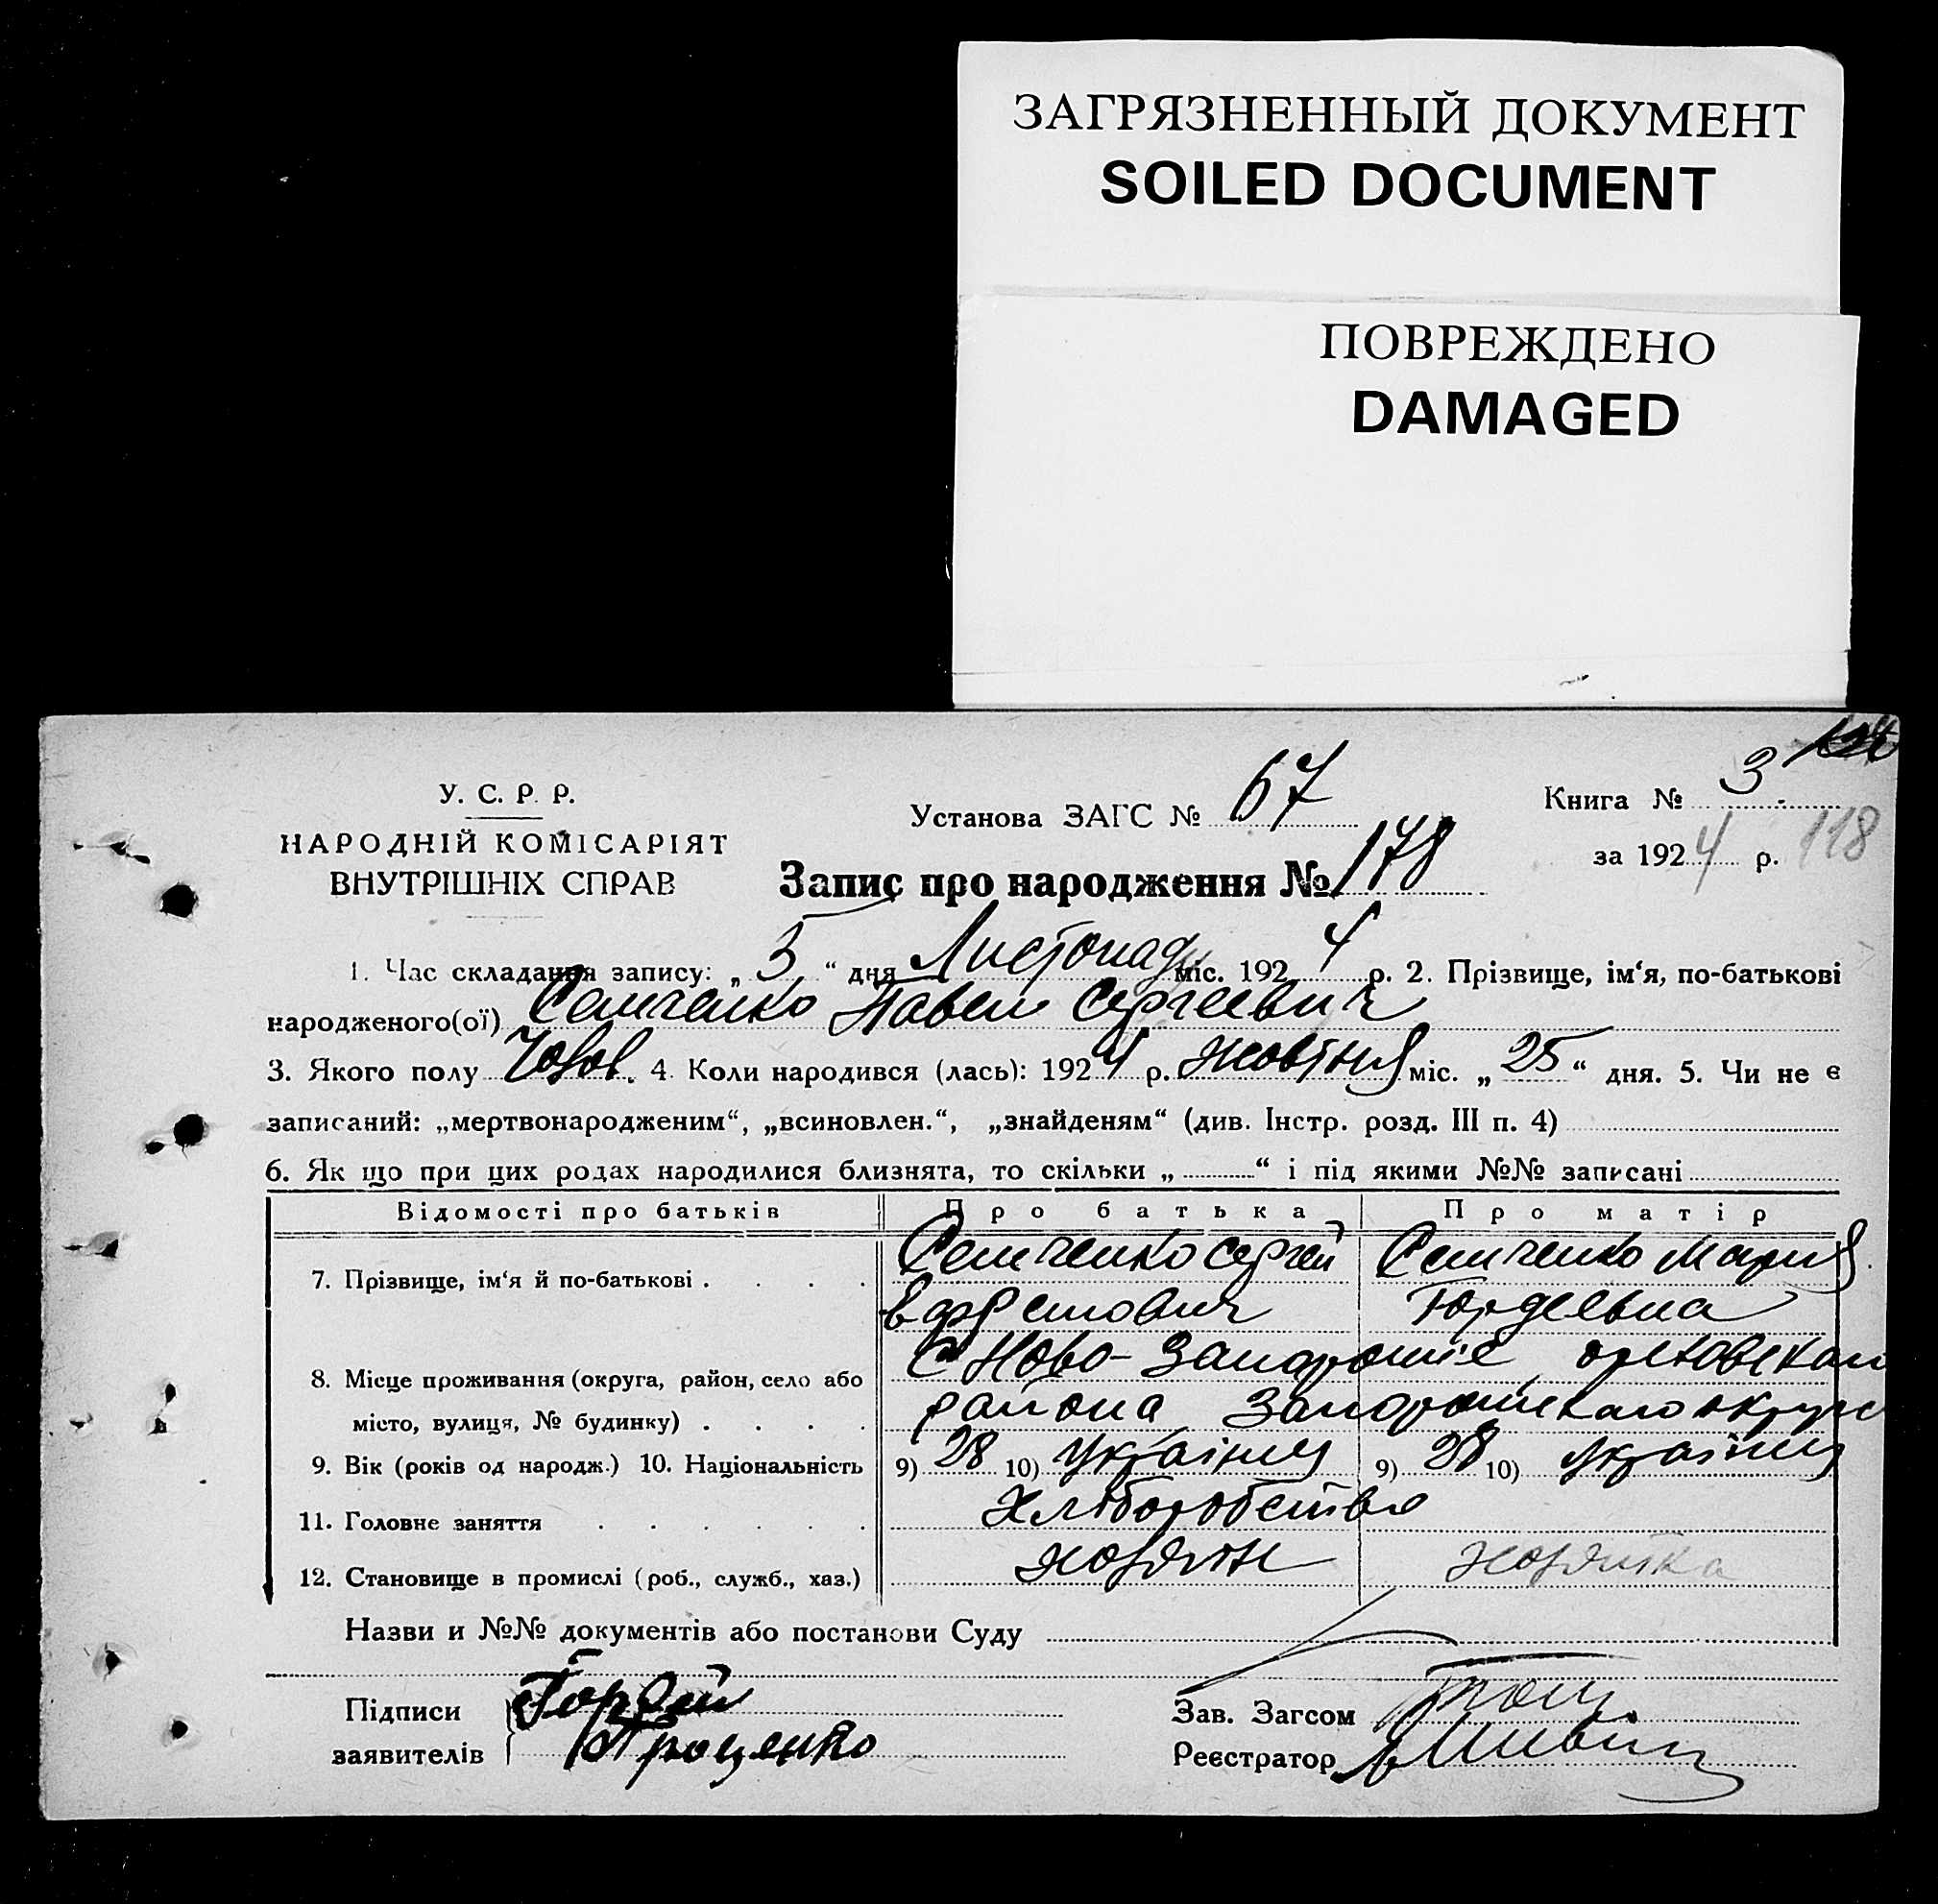 ЗАГРЯЗНЕННЫЙ ДОКУМЕНТ
SOILED DOCUMENT
ПОВРЕЖДЕНО
DAMAGED
У. С. Р. Р.
НАРОДНІЙ КОМІСАРІЯТ
ВНУТРІШНІХ СПРАВ
Установа ЗАГС № 67
Книга № 3
за 1924 р. 118
Запис про народження № 178
1. Час складання запису: „5“ дня Листопаду міс. 1924 р. 2. Прізвище, ім‘я, по-батькові
народженого(ої) Семченко Павел Сергеевич
3. Якого полу Чолов. 4. Коли народився (лась): 1924 р. Жовтня міс. „25“ дня. 5. Чи не є
записаний: „мертвонародженим“, „всиновлен.“, „знайденям“ (див. Інстр. розд. III п. 4)
6. Як що при цих родах народилися близнята, то скільки „ “ і під якими №№ записані
Відомості про батьків Про батька Про матір
7. Прізвище, ім‘я й по-батькові . . . . Семченко Сергей Семченко Мария
Гордеевна
8. Місце проживання (округа, район, село або С Ново-Запорожіе, ореховскаго
місто, вулиця, № будинку) . . . . района Запорожскаго округа
9. Вік (років од народж.) 10. Національність 9) 28 10) Україн. 9) 28 10) Україн.
11. Головне заняття . . . . . . Хліборобство
12. Становище в промислі (роб., служб., хаз.) хозяін хозяйка
Назви и №№ документів або постанови Суду
Підписи Гордей Зав. Загсом
заявителів Проценко Реєстратор